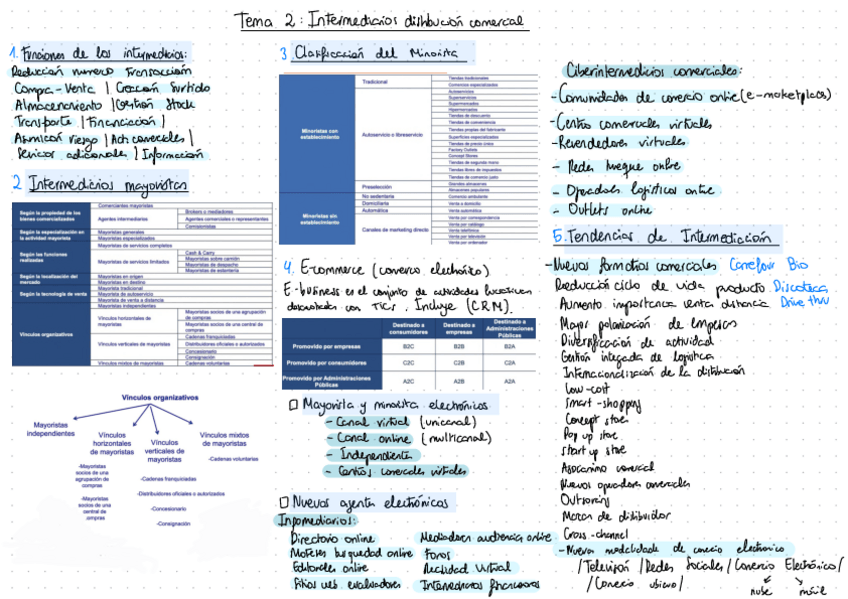 Tema 2: Intermediarios distribución comercial
1. Funciones de los intermediarios:
Reducción número Transacción
Compra-Venta | Creación Surtido
Almacenamiento | Gestión Stock
Transporte | Financiación |
Asunción riesgo | Act. comerciales |
Servicios adicionales | Información
2 Intermediarios mayoristas
Según la propiedad de los bienes comercializados
Comerciantes mayoristas
Agentes intermediarios
Brokers o mediadores
Agentes comerciales o representantes
Comisionistas
Según la especialización en la actividad mayorista
Mayoristas generales
Mayoristas especializados
Según las funciones realizadas
Mayoristas de servicios completos
Mayoristas de servicios limitados
Cash & Carry
Mayoristas sobre camión
Mayoristas de despacho
Mayoristas de estantería
Según la localización del mercado
Mayoristas en origen
Mayoristas en destino
Según la tecnología de venta
Mayorista tradicional
Mayorista de autoservicio
Mayorista de venta a distancia
Vínculos organizativos
Mayoristas independientes
Vínculos horizontales de mayoristas
Mayoristas socios de una agrupación de compras
Mayoristas socios de una central de compras
Vínculos verticales de mayoristas
Cadenas franquiciadas
Distribuidores oficiales o autorizados
Concesionario
Consignación
Vínculos mixtos de mayoristas
Cadenas voluntarias
Vínculos organizativos
Mayoristas
independientes
Vínculos
horizontales
de mayoristas
Vínculos
verticales de
mayoristas
Vínculos mixtos
de mayoristas
-Mayoristas
socios de una
agrupación de
compras
-Mayoristas
socios de una
central de
compras
-Cadenas franquiciadas
-Distribuidores oficiales o autorizados
-Concesionario
-Consignación
-Cadenas voluntarias
3 Clasificación del Minorista
Minoristas con establecimiento
Tradicional
Tiendas tradicionales
Comercios especializados
Autoservicio o libreservicio
Autoservicios
Superservicios
Supermercados
Hipermercados
Tiendas de descuento
Tiendas de conveniencia
Tiendas propias del fabricante
Superficies especializados
Tiendas de precio único
Factory Outlets
Concept Stores
Tiendas de segunda mano
Tiendas libres de impuestos
Tiendas de comercio justo
Preselección
Grandes almacenes
Almacenes populares
Minoristas sin establecimiento
No sedentaria
Comercio ambulante
Domiciliaria
Venta a domicilio
Automática
Venta automática
Canales de marketing directo
Venta por correspondencia
Venta por catálogo
Venta telefónica
Venta por televisión
Venta por ordenador
4. E-commerce (comercio electrónico)
E-business es el conjunto de actividades lucrativas
desarrolladas con TICs. Incluye (CRM).
Destinado a consumidores
Destinado a empresas
Destinado a Administraciones Públicas
Promovido por empresas B2C B2B B2A
Promovido por consumidores C2C C2B C2A
Promovido por Administraciones Públicas A2C A2B A2A
Mayorista y minorista electrónicos
- Canal virtual (unicanal)
- Canal online (multicanal)
- Independiente
- Centros comerciales virtuales
Nuevos agentes electrónicos
Infomediarios:
Directorio online
Motores búsqueda online
Editoriales online
Sitios web evaluadores
Mediadores audiencia online
Foros
Realidad virtual
Intermediarios financieros
Ciberintermediarios comerciales:
- Comunidades de comercio online (e-marketplaces)
- Centros comerciales virtuales
- Revendedores virtuales
- Redes trueque online
- Operadores logísticos online
- Outlets online
5. Tendencias de Intermediación
- Nuevos formatos comerciales Carrefour Bio
Reducción ciclo de vida producto Discoteca
Aumento importancia venta distancia Drive thru
Mayor polarización de empresas
Diversificación de actividad
Gestión integrada de logística
Internacionalización de la distribución
Low-cost
Smart-shopping
Concept store
Pop up store
Start up store
Asociacionismo comercial
Nuevos operadores comerciales
Outsourcing
Marcas de distribuidor
Cross-channel
- Nueva modalidad de comercio electrónico
/Televisión /Redes Sociales/ Comercio Electrónico/
/Comercio ubicuo/
nube
móvil